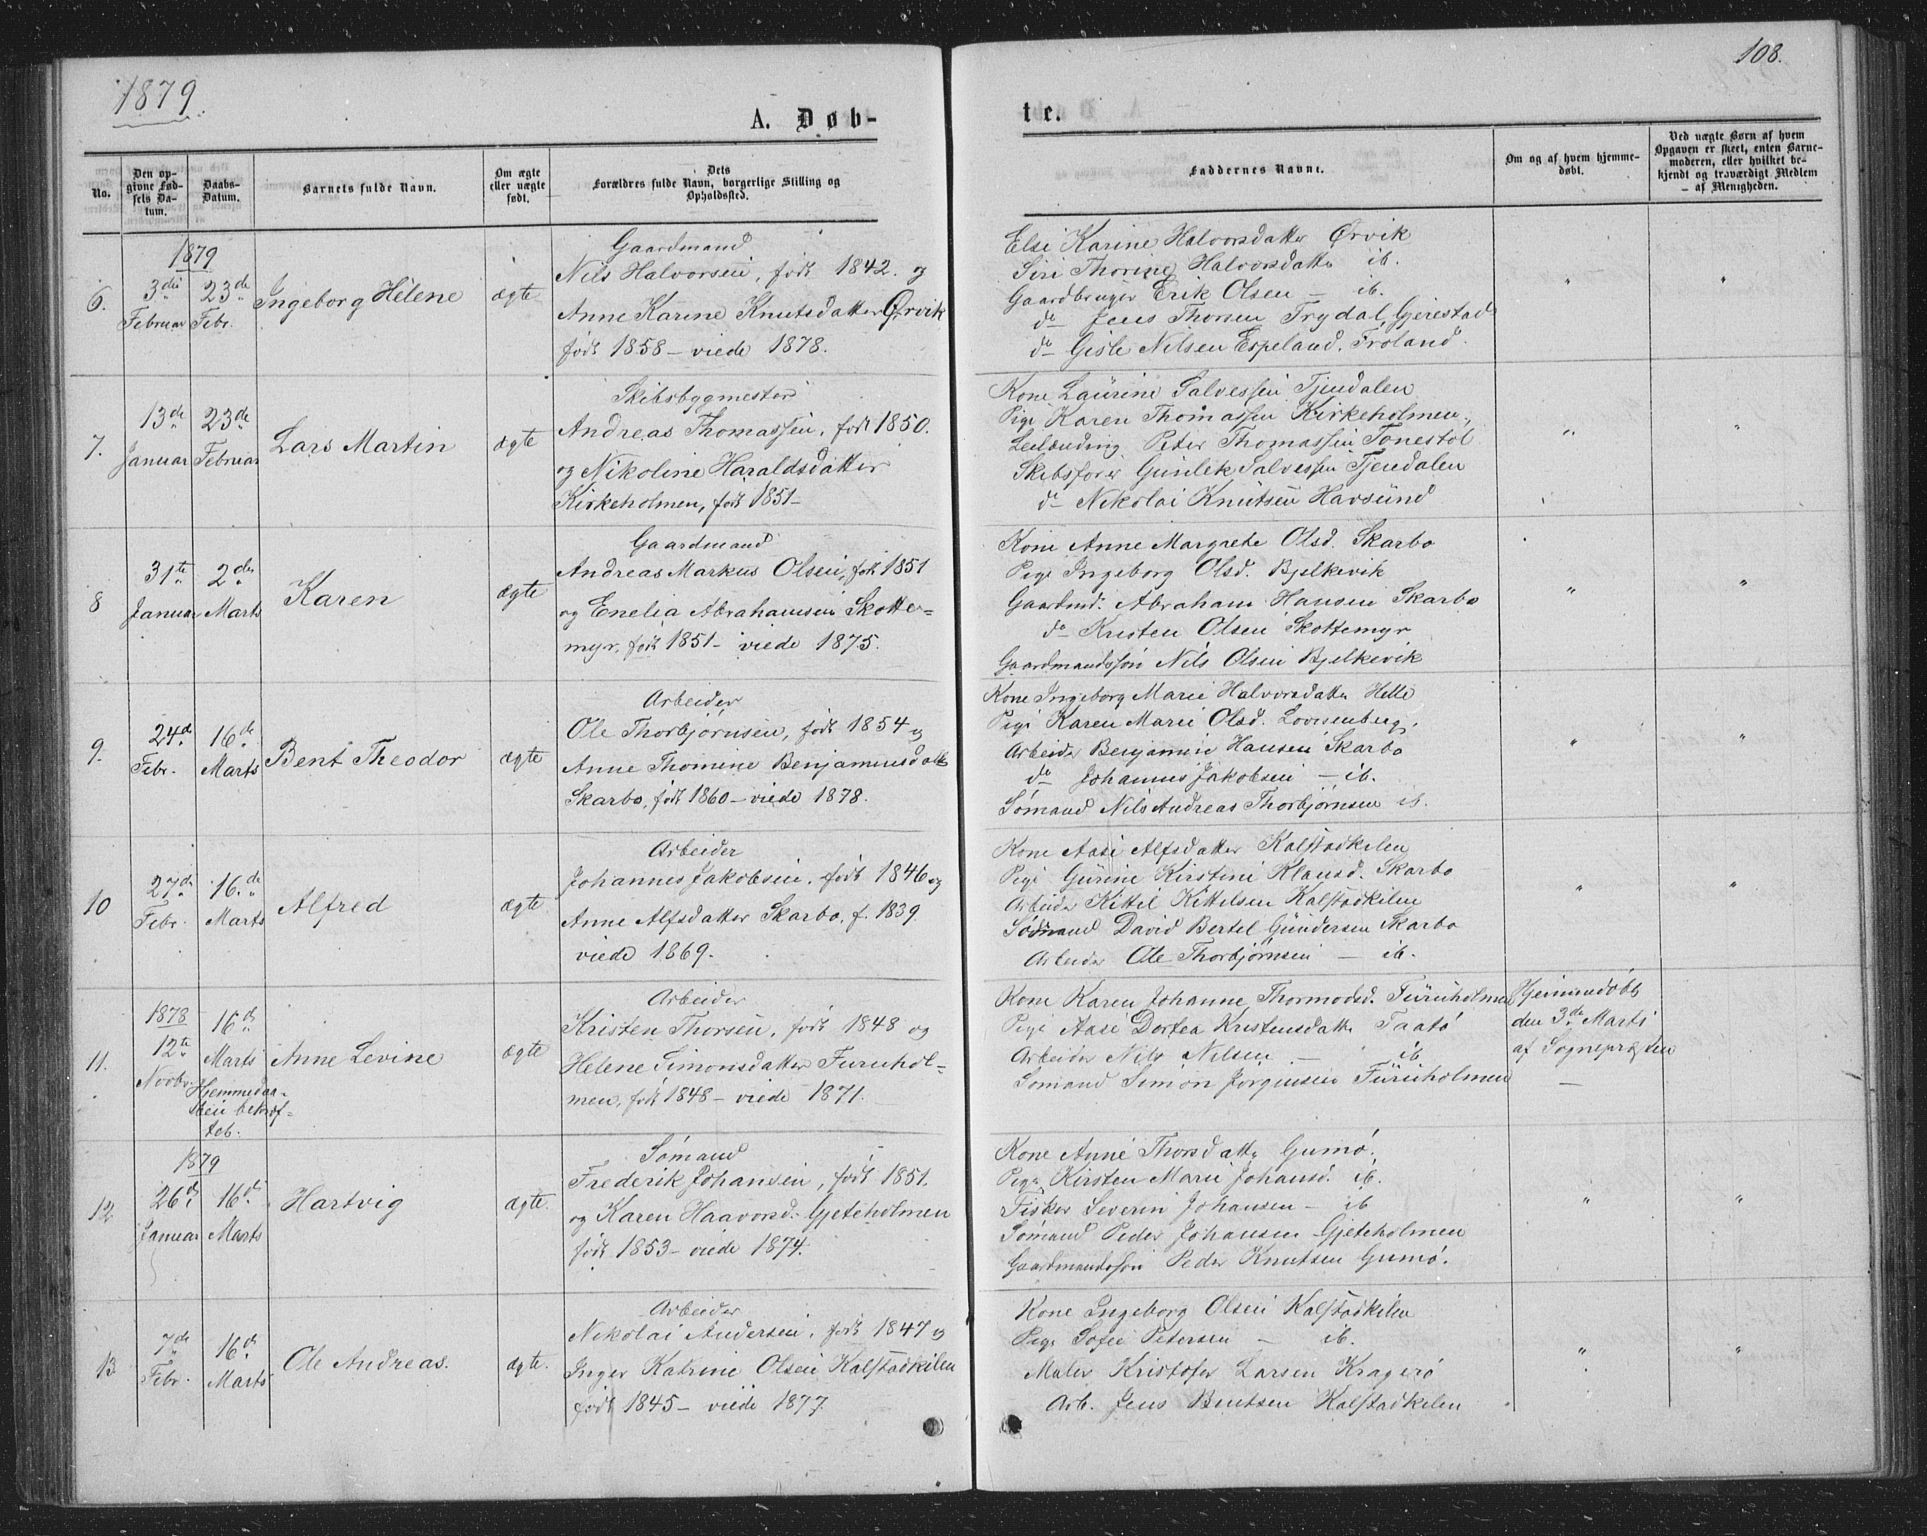 1879.
108.
A. Døb-
te.
No.
Den opgivne Fødsels Datum.
Daabs-Datum.
Barnets fulde Navn.
Om ægte eller uægte født.
Dets Forældres fulde Navn, borgerlige Stilling og Opholdssted.
Faddernes Navne.
Om og af hvem hjemmedøbt.
Ved uægte Børn af hvem Opgaven er skeet, enten Barnemoderen, eller hvilket bekjendt og troværdigt Medlem af Menigheden.
1879
6.
3die Februar
23de Febr.
Ingeborg Helene
ægte
Gaardmand
Nils Halvorsen, født 1842. og
Anne Karine Knutsdatter Ørvik
født 1858 – viede 1878.
Else Karine Halvorsdatter Ørvik
Siri Thorine Halvorsdatter ib.
Gaardbruger Erik Olsen – ib.
do Jens Thorsen Trydal, Gjerestad
do Gisle Nilsen Espeland, Froland.
7.
13de Januar
23de Februar
Lars Martin
ægte
Skibsbygmester
Andreas Thomassen, født 1850.
og Nikoline Haraldsdatter
Kirkeholmen, født 1851 –
Kone Laurine Salvessen Tjendalen
Pige Karen Thomassen Kirkeholmen,
Leilænding Peter Thomassen Tonestøl
Skibsfører Gunlek Salvessen Tjendalen
do Nikolai Knutsen Havsund
8
31te Januar
2den Marts
Karen
ægte
Gaardmand
Andreas Markus Olsen, født 1851
og Enelia Abrahamsen Skotte=
myr, født 1851 – viede 1875.
Kone Anne Margrete Olsd. Skarbo
Pige Ingeborg Olsd. Bjelkevik
Gaardmd. Abraham Hansen Skarbo
do Kristen Olsen Skottemyr
Gaardmandssøn Nils Olsen Bjelkevik
9.
24de Febr.
16de Marts
Bent Theodor
ægte
Arbeider
Ole Thorbjørnsen, født 1854 og
Anne Thomine Benjaminsdatter
Skarbo, født 1860 – viede 1878.
Kone Ingeborg Marie Halvorsdatter Helle
Pige Karen Marie Olsd. Lovisenberg,
Arbeider Benjamin Hansen Skarbo
do Johannes Jakobsen – ib.
Sømand Nils Andreas Thorbjørnsen ib.
10
27de Febr.
16.de Marts
Alfred
ægte
Arbeider
Johannes Jakobsen, født 1846 og
Anne Alfsdatter Skarbo, f. 1839.
viede 1869.
Kone Aase Alfsdatter Kalstadkilen
Pige Gurine Kirstine Klausd. Skarbo
Arbeider Kittil Kittelsen Kalstadkilen
Sømand David Bertel Gundersen Skarbo
Arbeider Ole Thorbjørnsen – ib.
11.
1878
12te Novbr.
16de Marts
Hjemmedaa=
ben bekræf=
tet.
Anne Levine
ægte
Arbeider
Kristen Thorsen, født 1848 og
Helene Simonsdatter Furuhol=
men, født 1848 – viede 1871.
Kone Karen Johanne Thormodsd. Furuholmen
Pige Aase Dortea Kristensdatter Taatø
Arbeider Nils Nilsen – ib
Sømand Simon Jørgensen Furuholmen
Hjemmedøbt
den 3de Marts
af Sognepræsten
–
1879
12
26de Januar
16de Marts
Hartvig
ægte.
Sømand
Frederik Johansen, født 1851.
og Karen Haavorsd. Gjeteholmen
født 1853 – viede 1874.
Kone Anne Thorsdatter Gumø.
Pige Kirsten Marie Johansd. ib.
Fisker Severin Johansen – ib
Sømand Peder Johansen Gjeteholmen
Gaardmandssøn Peder Knutsen Gumø.
13
7de Febr.
16de Marts
Ole Andreas.
ægte.
Arbeider
Nikolai Andersen, født 1847 og
Inger Katrine Olsen Kalstadkilen
født 1845 – viede 1877.
Kone Ingeborg Olsen Kalstadkilen
Pige Sofie Petersen – ib.
Maler Kristofer Larsen Kragerø
Arb. Jens Bentsen Kalstadkilen